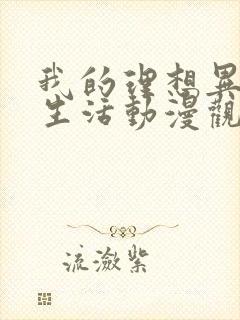 我的理想異
生活動漫觀
流瀲紫